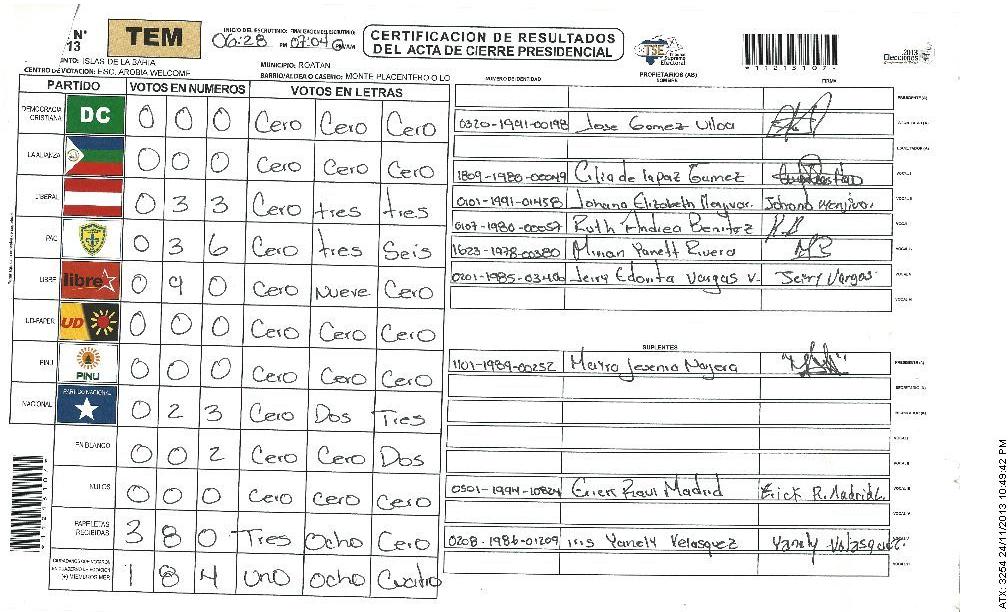 N°
13
TEM
INICIO DEL ESCRUTINIO: FINALIZACION DEL ESCRUTINIO:
06:28 PM 07:04
CERTIFICACION DE RESULTADOS
DEL ACTA DE CIERRE PRESIDENCIAL
TSE
Tribunal Supremo Electoral
2013
Elecciones
911213107
NTO: ISLAS DE LA BAHIA
MUNICIPIO: ROATAN
CENTRO DE VOTACION: ESC. AROBIA WELCOME
BARRIO/ALDEA O CASERIO: MONTE PLACENTERO O LO
NUMERO DE IDENTIDAD
PROPIETARIOS (AS)
NOMBRE
FIRMA
PARTIDO VOTOS EN NUMEROS VOTOS EN LETRAS
DEMOCRACIA CRISTIANA DC 0 0 0 Cero Cero Cero
LA ALIANZA 0 0 0 Cero Cero Cero
LIBERAL 0 3 3 Cero tres tres
PAC 0 3 6 Cero tres Seis
LIBRE libre 0 9 0 Cero Nueve Cero
UD-FAPER UD 0 0 0 Cero Cero Cero
PINU PINU 0 0 0 Cero Cero Cero
NACIONAL PARTIDO NACIONAL 0 2 3 Cero Dos Tres
EN BLANCO 0 0 2 Cero Cero Dos
NULOS 0 0 0 Cero Cero Cero
PAPELETAS RECIBIDAS 3 8 0 Tres Ocho Cero
CIUDADANOS QUE VOTARON EN CUADERNO DE VOTACION (+) MIEMBROS MER 1 8 4 uno ocho Cuatro
PRESIDENTE (A)
0320-1991-00198 Jose Gomez Ulloa
1809-1980-00049 Cilia de la paz Gamez
0101-1991-01458 Johana Elizabeth Menjivar. Johana Menjivar.
0107-1980-00057 Ruth Andrea Benitez R.B
1623-1978-00380 Mirian Yanett Rivera
0201-1985-03400 Jerry Edonita Vargas V. Jerry Vargas
SUPLENTES
1101-1989-00252 Mayra Jesenia Najera PRESIDENTE (A)
SECRETARIO (A)
0501-1994-10824 Erick Raul Madrid Erick R. Madrid L.
0208-1986-01209 Iris Yanely Velasquez Yanely Velasquez
ATX: 3254 24/11/2013 10:49:42 PM